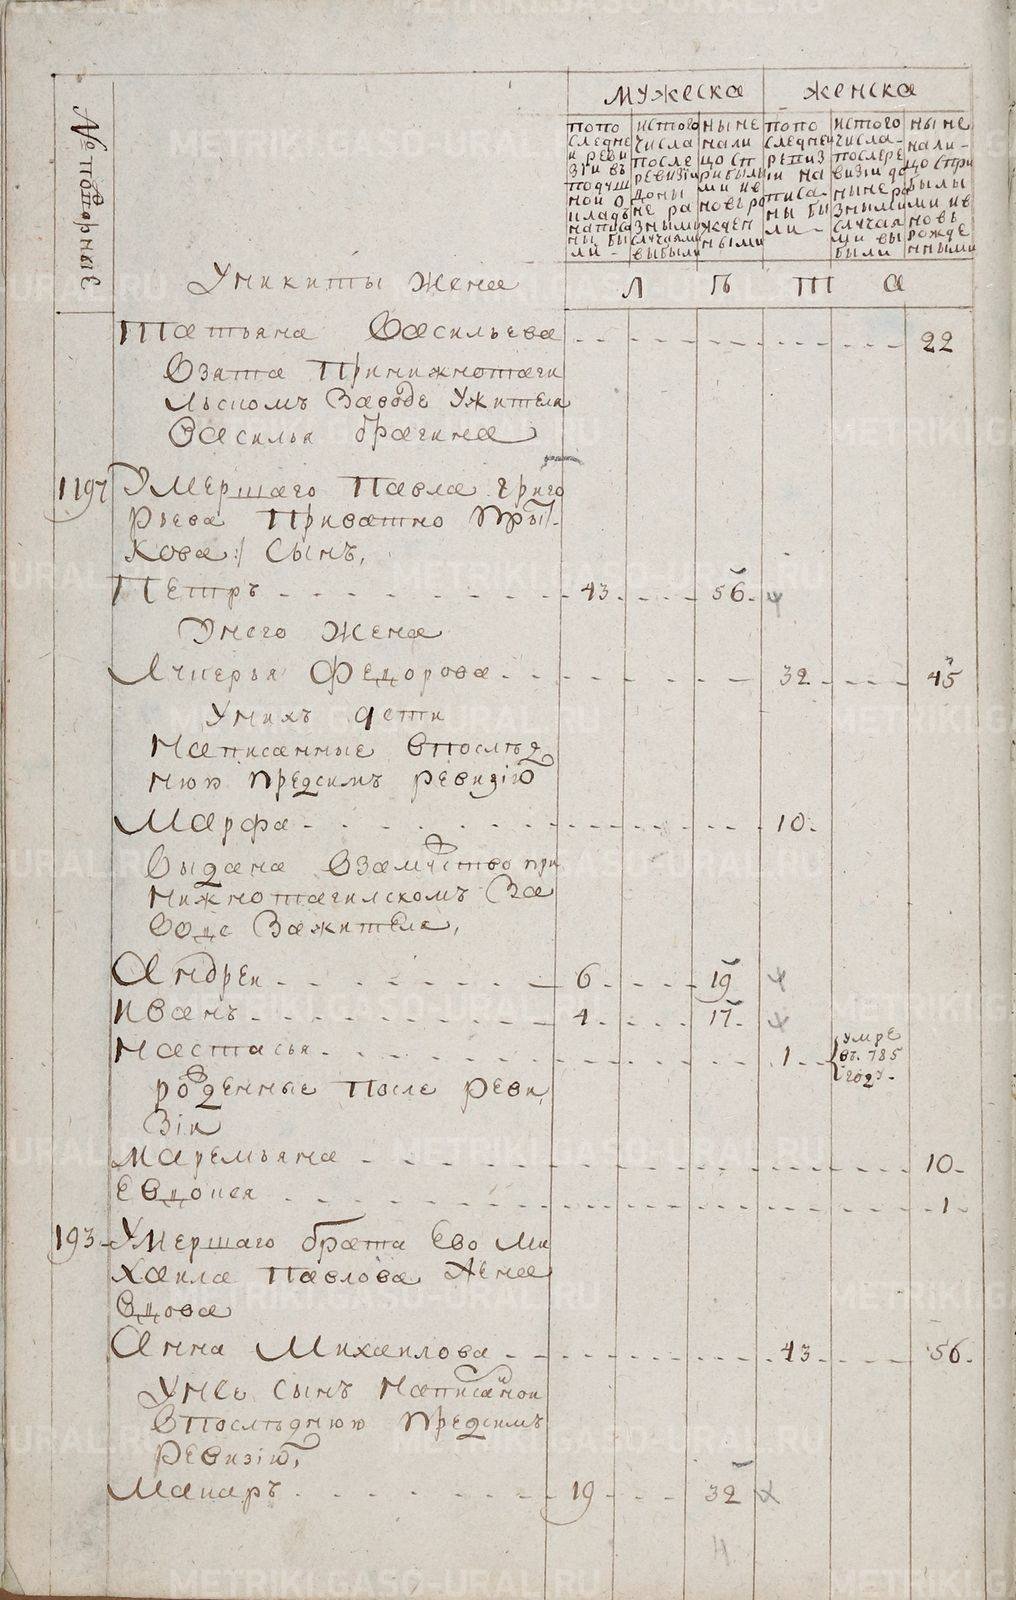 METRIKI.GASO-URAL.RU
№ поворные
мужеска
женска
попо следне и реви зги въ подуш ной о кладъ написа ны бы ли -
истого числа после ревизiи доны не ра зными случаями выбыли
ныне нали цо сп рибылы ми ив новь ро жден ными
попо следней ревиз iи на писа ны бы ли -
истого числа - послере визiи до ныне ра зными случая ми вы были
ныне нали - цо спри былы ми ив новь рожде нными
Уникиты жена
л ѣ т а
Татьяна Васильева 22
Взята Принижнотаги
льском Заводе Ужителя
Василья брагина
1197 Умершаго Павла григо
рьева Приватно
кова :/ Сынъ,
Петръ 43 56
Унего жена
Лукерья Федорова 32 45
Унихъ дети
Написанные впослѣд
нюю предсимъ ревизiю
Марфа 10
Выдана Взамужство при
нижнотагилскомъ За
воде Зажителя,
Андреи 6 19
Иванъ 4 17
Настасья 1 умре въ. 785 году.
рожденные После реви
зiи
Маремьяна 10
Евдокея 1
193 Умершаго брата Ево Ми
хаила Павлова жена
вдова
Анна Михаилова 43 56
Унее сынъ написанои
впослѣднюю предсимъ
ревизiю,
Макаръ 19 32
4